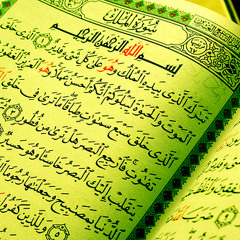 سُورَةُ الْمُلْكِ
بِسْمِ اللَّهِ الرَّحْمَٰنِ الرَّحِيمِ
تَبَٰرَكَ الَّذِي بِيَدِهِ الْمُلْكُ وَهُوَ عَلَىٰ كُلِّ شَيْءٍ قَدِيرٌ ١ الَّذِي خَلَقَ
الْمَوْتَ وَالْحَيَوٰةَ لِيَبْلُوَكُمْ أَيُّكُمْ أَحْسَنُ عَمَلًا وَهُوَ الْعَزِيزُ
الَّذِي خَلَقَ سَبْعَ سَمَٰوَٰتٍ طِبَاقًا مَّا تَرَىٰ فِي خَلْقِ
تَفَٰوُتٍ فَارْجِعِ الْبَصَرَ هَلْ تَرَىٰ مِن فُطُورٍ
يَنقَلِبْ إِلَيْكَ الْبَصَرُ خَاسِئًا وَهُوَ حَسِيرٌ
الدُّنْيَا بِمَصَٰبِيحَ وَجَعَلْنَٰهَا رُجُومًا
٥ وَلِلَّذِينَ كَفَرُوا
ضَرَبَ